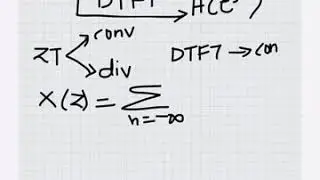 DTFT H(e
ZT conv
div
DTFT → con
X(z) = Σ
n=-∞